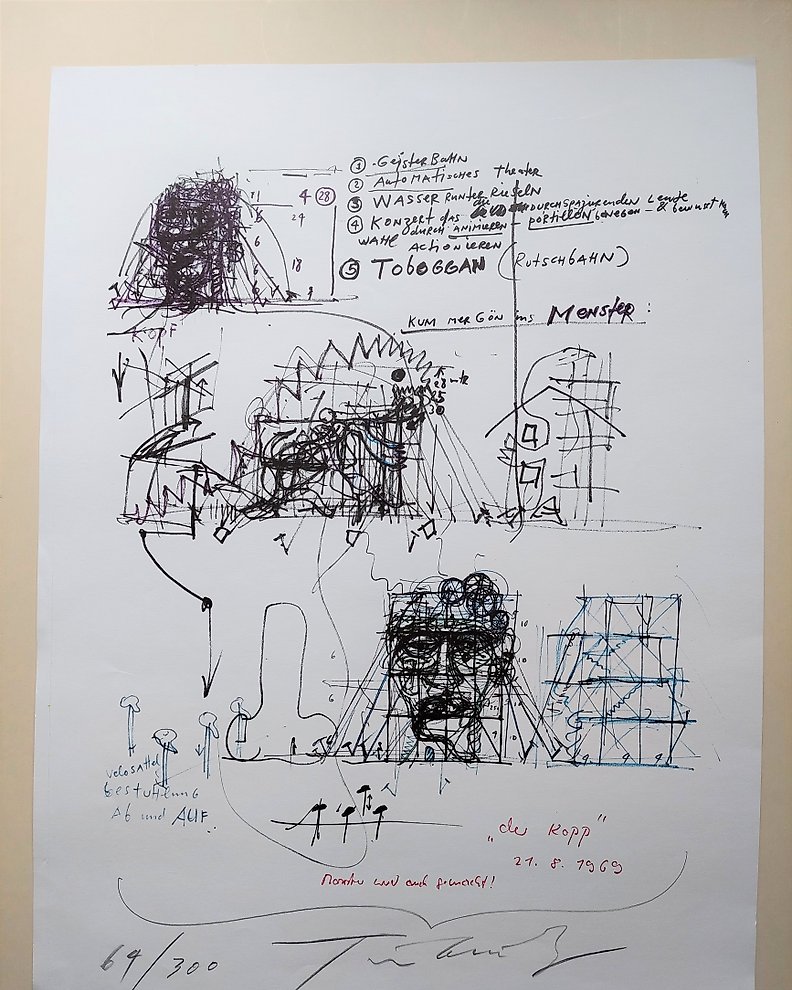 ① Geister Bahn
② Automatisches Theater
③ Wasser runter rieseln
④ Konzert das die durchspazierenden Leute
wahl durch animieren - portillon bewegen - & bewusst
actionieren
⑤ Toboggan (Rutschbahn)
4 28
24
6
6
18
Kopf
Kum mer Gön ins Monster:
velosattel
bestuhlung
Ab und AUF.
"der Kopp"
21. 8. 1969
Monster wird auch gemacht!
64/300